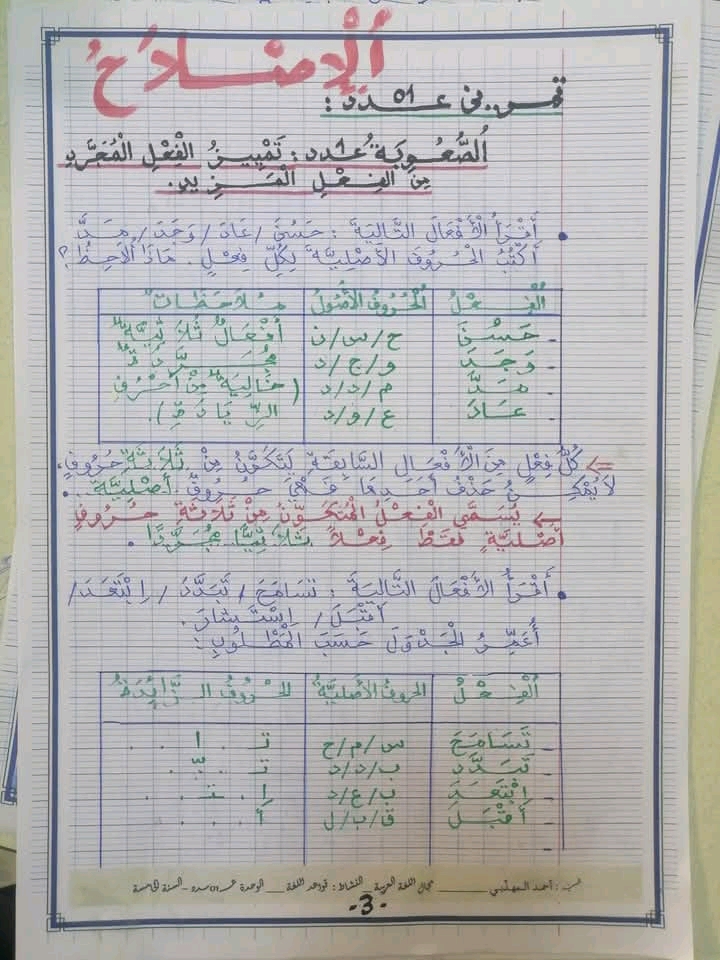 اَلْإِصْلَاحُ
تمرين عـ01ـدد :
الصُّعُوبَةُ عـ1ـدد : تَمْيِيزُ الْفِعْلِ الْمُجَرَّدِ
مِنَ الْفِعْلِ الْمَزِيدِ.
• أَقْرَأُ الْأَفْعَالَ التَّالِيَةَ : حَسُنَ / عَادَ / وَجَدَ / مَدَّ
أَكْتُبُ الْحُرُوفَ الْأَصْلِيَّةَ لِكُلِّ فِعْلٍ. مَاذَا أُلَاحِظُ؟
الْفِعْلُ | الْحُرُوفُ الْأُصُولُ | مُلَاحَظَاتٌ
- حَسُنَ | ح / س / ن | أَفْعَالٌ ثُلَاثِيَّةٌ
- وَجَدَ | و / ج / د | مُجَرَّدَةٌ
- مَدَّ | م / د / د | (خَالِيَةٌ مِنْ أَحْرُفِ
- عَادَ | ع / و / د | الزِّيَادَةِ).
⇐ كُلُّ فِعْلٍ مِنَ الْأَفْعَالِ السَّابِقَةِ يَتَكَوَّنُ مِنْ ثَلَاثَةِ حُرُوفٍ.
لَا يُمْكِنُ حَذْفُ أَحَدِهَا فَهْيَ حُرُوفٌ أَصْلِيَّةٌ.
← يُسَمَّى الْفِعْلُ الْمُتَكَوِّنُ مِنْ ثَلَاثَةِ حُرُوفٍ
أَصْلِيَّةٍ فَقَطْ فِعْلًا ثُلَاثِيًّا مُجَرَّدًا.
• أَقْرَأُ الْأَفْعَالَ التَّالِيَةَ : تَسَامَحَ / تَبَدَّدَ / اِبْتَعَدَ /
أَقْبَلَ / اِسْتَشَارَ.
أُعَمِّرُ الْجَدْوَلَ حَسَبَ الْمَطْلُوبِ :
الْفِعْلُ | الحروفُ الأصليّةُ | الحُرُوفُ الزَّائِدَةُ
- تَسَامَحَ | س / م / ح | تَـ . ا . .
- تَبَدَّدَ | ب / د / د | تَـ . ـّ .
- اِبْتَعَدَ | ب / ع / د | اِ . ـتَـ . .
- أَقْبَلَ | ق / ب / ل | أَ . . .
-
أحمد المهذبي ــــ مجال اللغة العربية ــ النشاط : قواعد اللغة ــ الوحدة عـ01ـدد - السنة الخامسة
-3-